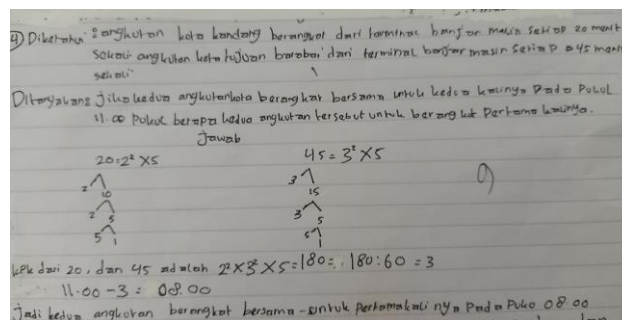 4) Diketahui : angkutan kota kandang berangkat dari terminal banjar masin setiap 20 menit
sekali angkutan kota tujuan barabai dari terminal banjar masin setiap 45 menit
sekali
Ditanyakan : Jika kedua angkutan kota berangkat bersama untuk kedua kalinya Pada Pukul
11.00 Pukul berapa kedua angkutan tersebut untuk berangkat Pertama kalinya.
Jawab
20 = 2² X5 45 = 3² X5
2 10 3 15
2 5 3 5
5 1 5 1
9
KPK dari 20, dan 45 adalah 2² X 3² X 5 = 180 = 180 : 60 = 3
11.00 - 3 = 08.00
Jadi kedua angkutan berangkat bersama - untuk pertamakali nya Pada Puko 08.00